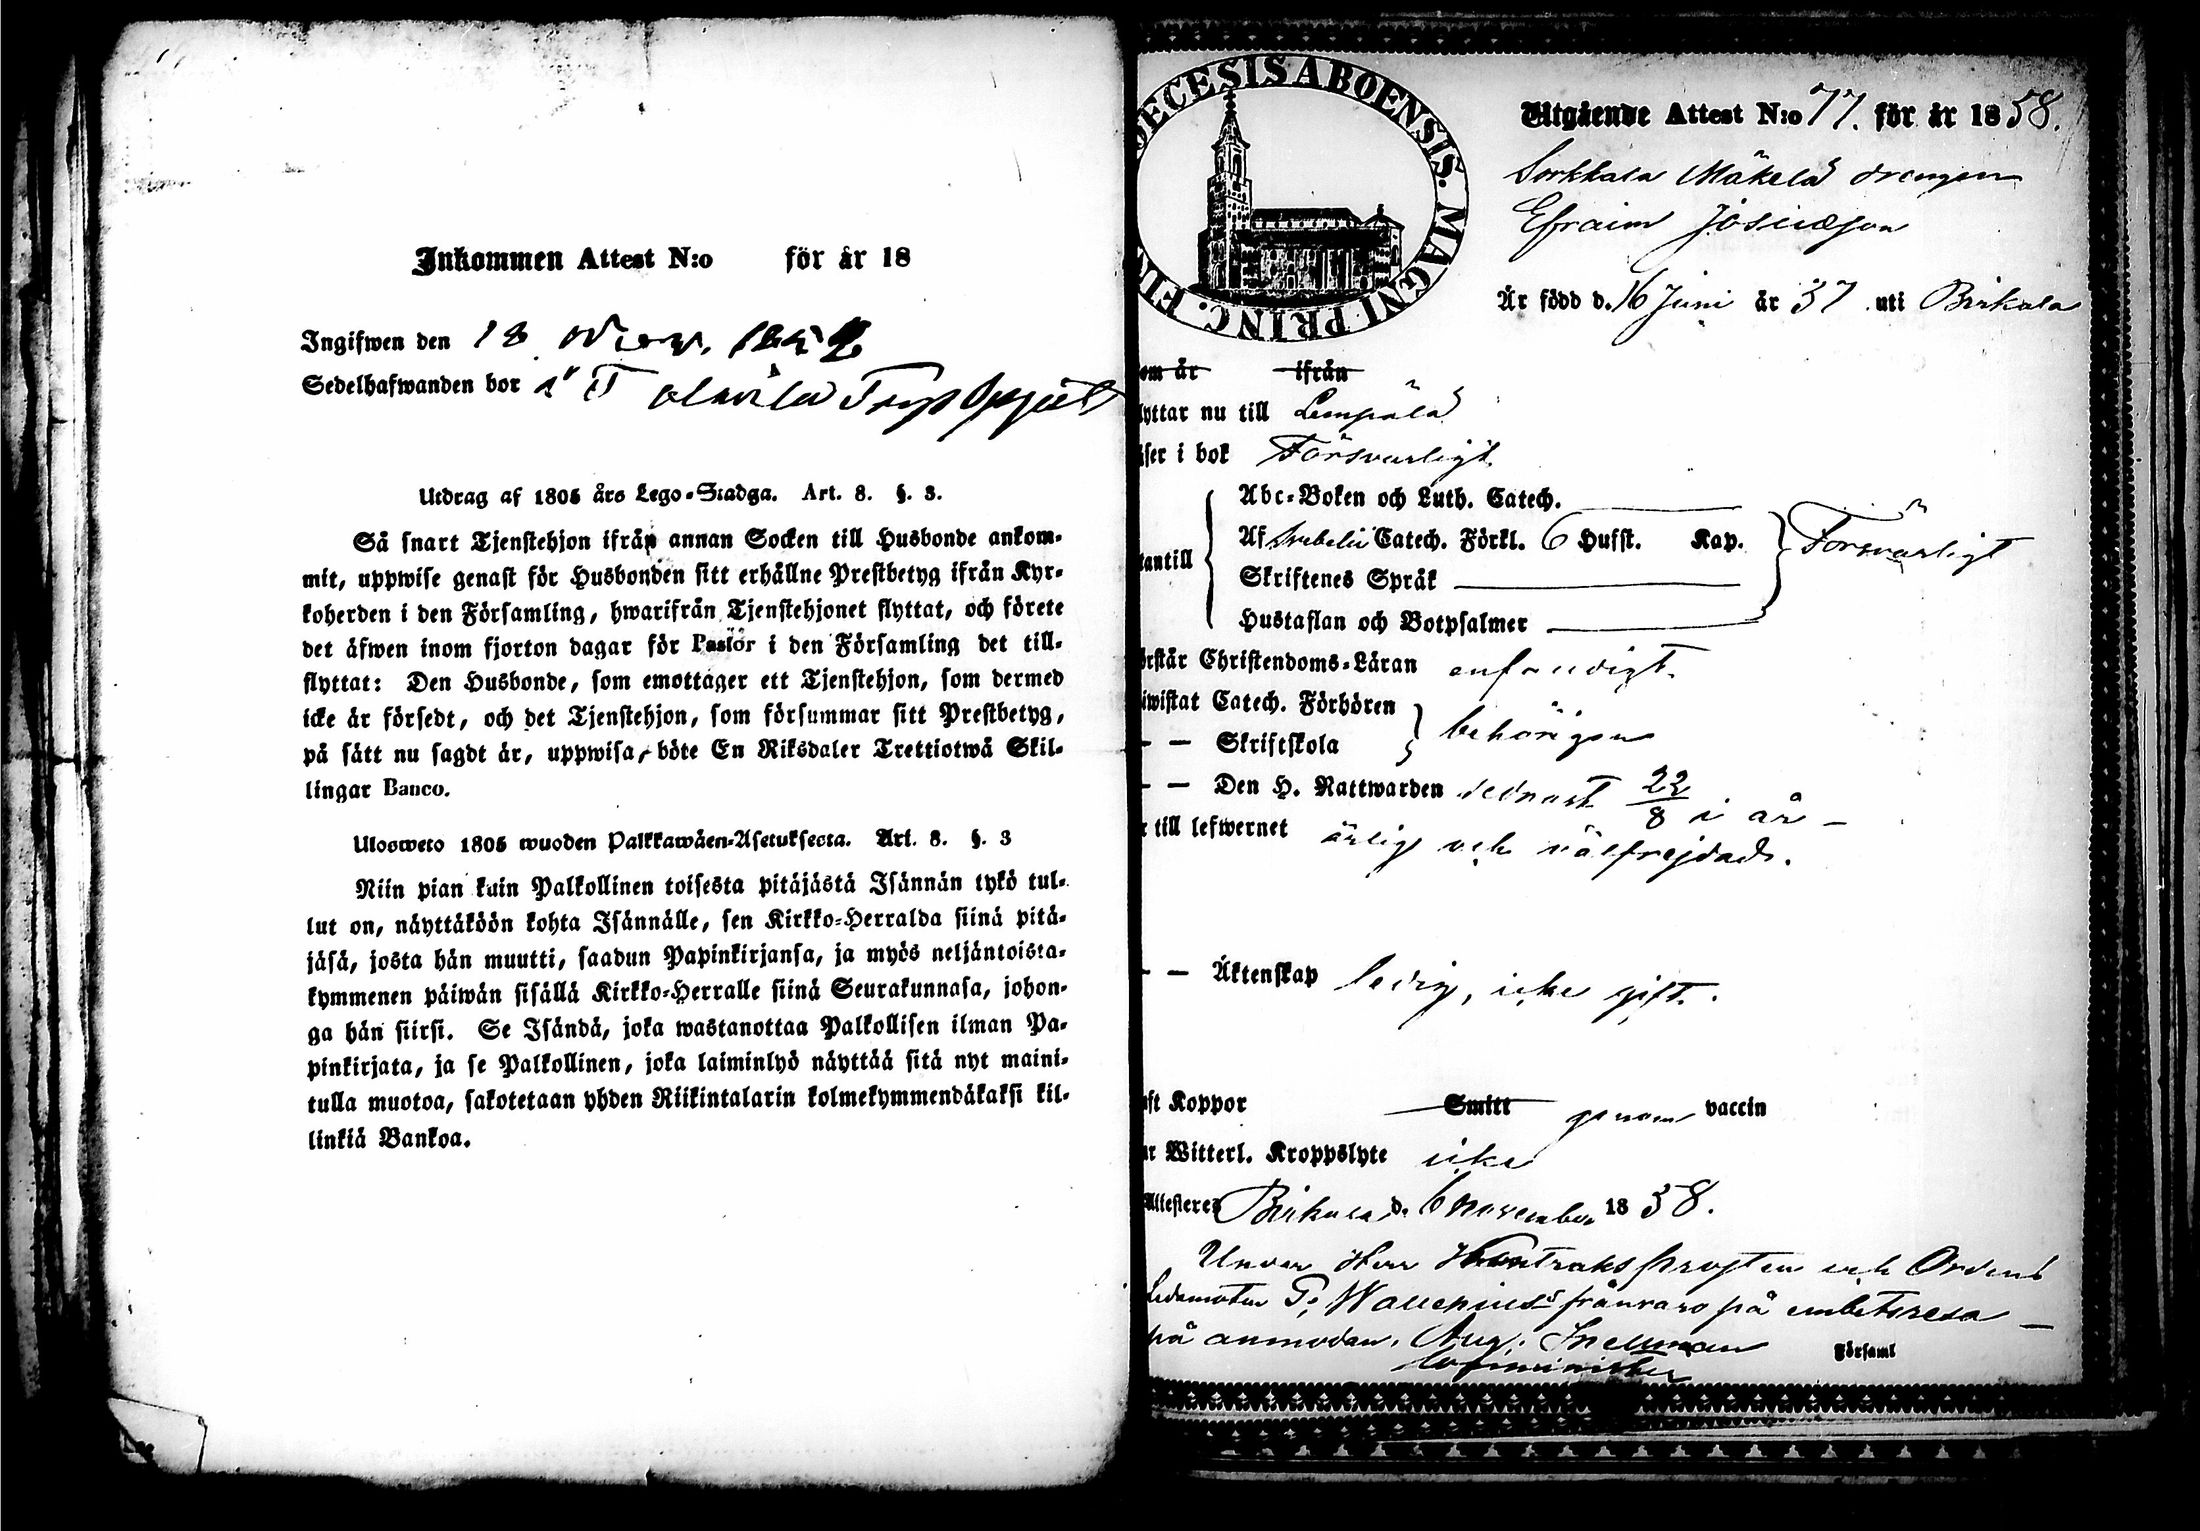 Inkommen Attest N:o för år 18
Ingifwen den 18 Nov. 185
Sedelhafwanden bor i
Utdrag af 1805 års Lego-Stadga. Art. 8. §. 3.
Så snart Tjenstehjon ifrån annan Socken till Husbonde ankom-
mit, uppwise genast för Husbonden sitt erhållne Prestbetyg ifrån Kyr-
koherden i den Församling, hwarifrån Tjenstehjonet flyttat, och förete
det äfwen inom fjorton dagar för Pastor i den Församling det till-
flyttat: Den Husbonde, som emottager ett Tjenstehjon, som dermed
icke är försedt, och det Tjenstehjon, som försummar sitt Prestbetyg,
på sätt nu sagdt är, uppwisa, böte En Riksdaler Trettiotwå Skil-
lingar Banco.
Uloosweto 1805 wuoden Palkkawäen-Asetuksesta. Art. 8. §. 3
Niin pian kuin Palkollinen toisesta pitäjästä Isännän tykö tul-
lut on, näyttäköön kohta Isännälle, sen Kirkko-Herralda siinä pitä-
jäsä, josta hän muutti, saadun Papinkirjansa, ja myös neljäntoista-
kymmenen päiwän sisällä Kirkko-Herralle siinä Seurakunnasa, johon-
ga hän siirsi. Se Isändä, joka wastanottaa Palkollisen ilman Pa-
pinkirjata, ja se Palkollinen, joka laiminlyö näyttää sitä nyt maini-
tulla muotoa, sakotetaan yhden Riikintalarin kolmekymmendäkaksi kil-
linkiä Bankoa.
DECESIS ABOENSIS. MAGNI PRINC. FIN
Utgående Attest N:o 77. för år 1858.
Sorkkala Mäkelä drengen
Efraim Josuæson
Är född d. 16 Juni år 37 uti Birkala
om år ifrån
lyttar nu till Lempälä
äser i bok Försvarligt
Abc-Boken och Luth. Catech.
Af Svebelii Catech. Förkl. 6 Hufst. Kap. Försvarligt
tantill
Skriftenes Språk
Hustaflan och Botpsalmer
örstår Christendoms-Läran enfaldigt
iwistat Catech. Förhören
behörigen
— — Skriftskola
— — Den H. Nattwarden sednast 22/8 i år —
r till lefwernet ärlig och välfrejdad.
— — Äktenskap ledig, icke gift.
aft Koppor Smitt genom vaccin
ar Witterl. Kroppslyte icke
Attesteres Birkala d. 6 november 1858.
Under Herr Kontraktsprosten och Ordens
Ledamoten G. Wallenius's frånvaro på embetsresa —
på anmodan. Aug. Snellman
Comminister
Församl